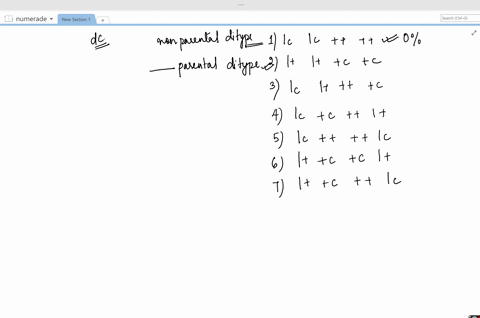 numerade
New Section 1
Search (Ctrl+E)
dc nonparental ditype 1) lc lc ++ ++ 0%
parental ditype 2) l+ l+ +c +c
3) lc l+ ++ +c
4) lc +c ++ l+
5) lc ++ ++ lc
6) l+ +c +c l+
7) l+ +c ++ lc